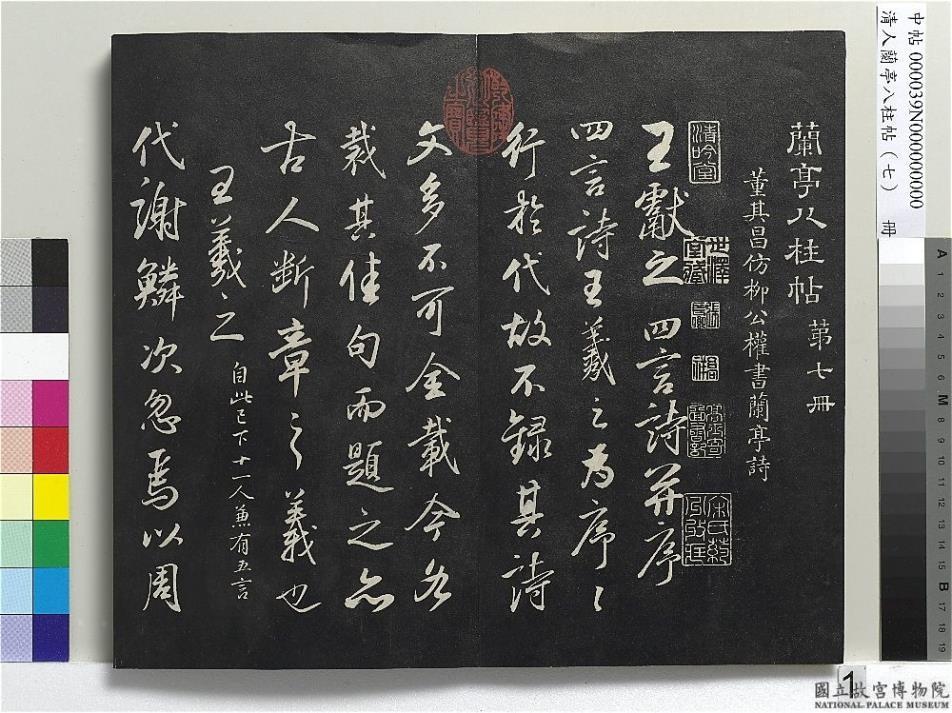 中帖 000039N000000000
清人蘭亭八柱帖(七)　冊
蘭亭八柱帖 第七冊
董其昌仿柳公權書蘭亭詩
清吟堂
王獻之四言詩并序
四言詩王羲之為序〻
行於代故不録其詩
文多不可全載今各
裁其佳句而題之亦
古人断章之義也
王羲之 自此已下十一人兼有五言
代謝鱗次忽焉以周
1
國立故宮博物院
NATIONAL PALACE MUSEUM
A
1
2
3
4
5
6
M
8
9
10
11
12
13
14
15
B
17
18
19